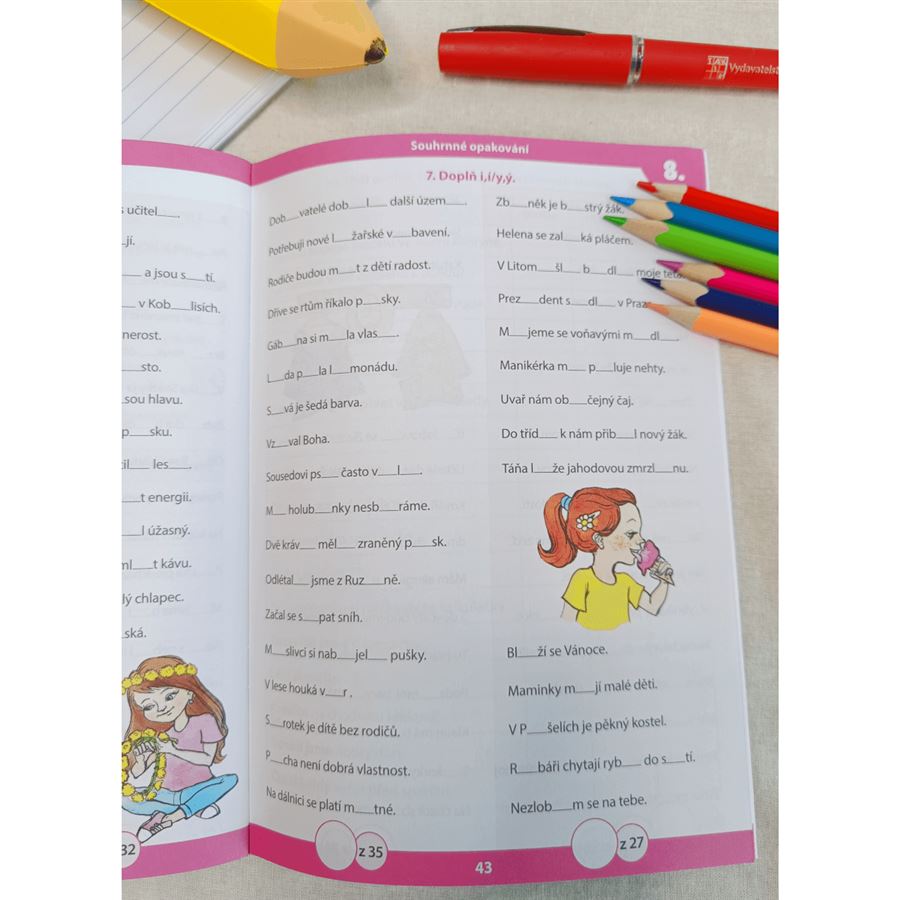 Vydavatelst
s učitel___.
jí.
___ a jsou s___tí.
___ v Kob___lisích.
nerost.
___sto.
sou hlavu.
p___sku.
til___ les___.
___t energii.
___l úžasný.
ml___t kávu.
lý chlapec.
ská.
32
Souhrnné opakování
8.
7. Doplň i,í/y,ý.
Dob___vatelé dob___l___ další územ___.
Potřebuji nové l___žařské v___bavení.
Rodiče budou m___t z dětí radost.
Dříve se rtům říkalo p___sky.
Gáb___na si m___la vlas___.
L___da p___la l___monádu.
S___vá je šedá barva.
Vz___val Boha.
Sousedovi ps___ často v___l___.
M___ holub___nky nesb___ráme.
Dvě kráv___ měl___ zraněný p___sk.
Odlétal___ jsme z Ruz___ně.
Začal se s___pat sníh.
M___slivci si nab___jel___ pušky.
V lese houká v___r .
S___rotek je dítě bez rodičů.
P___cha není dobrá vlastnost.
Na dálnici se platí m___tné.
z 35
Zb___něk je b___strý žák.
Helena se zal___ká pláčem.
V Litom___šl___ b___dl___ moje teta.
Prez___dent s___dl___ v Praz
M___jeme se voňavými m___dl___.
Manikérka m___ p___luje nehty.
Uvař nám ob___čejný čaj.
Do tříd___ k nám přib___l nový žák.
Táňa l___že jahodovou zmrzl___nu.
Bl___ží se Vánoce.
Maminky m___jí malé děti.
V P___šelích je pěkný kostel.
R___báři chytají ryb___ do s___tí.
Nezlob___m se na tebe.
z 27
43